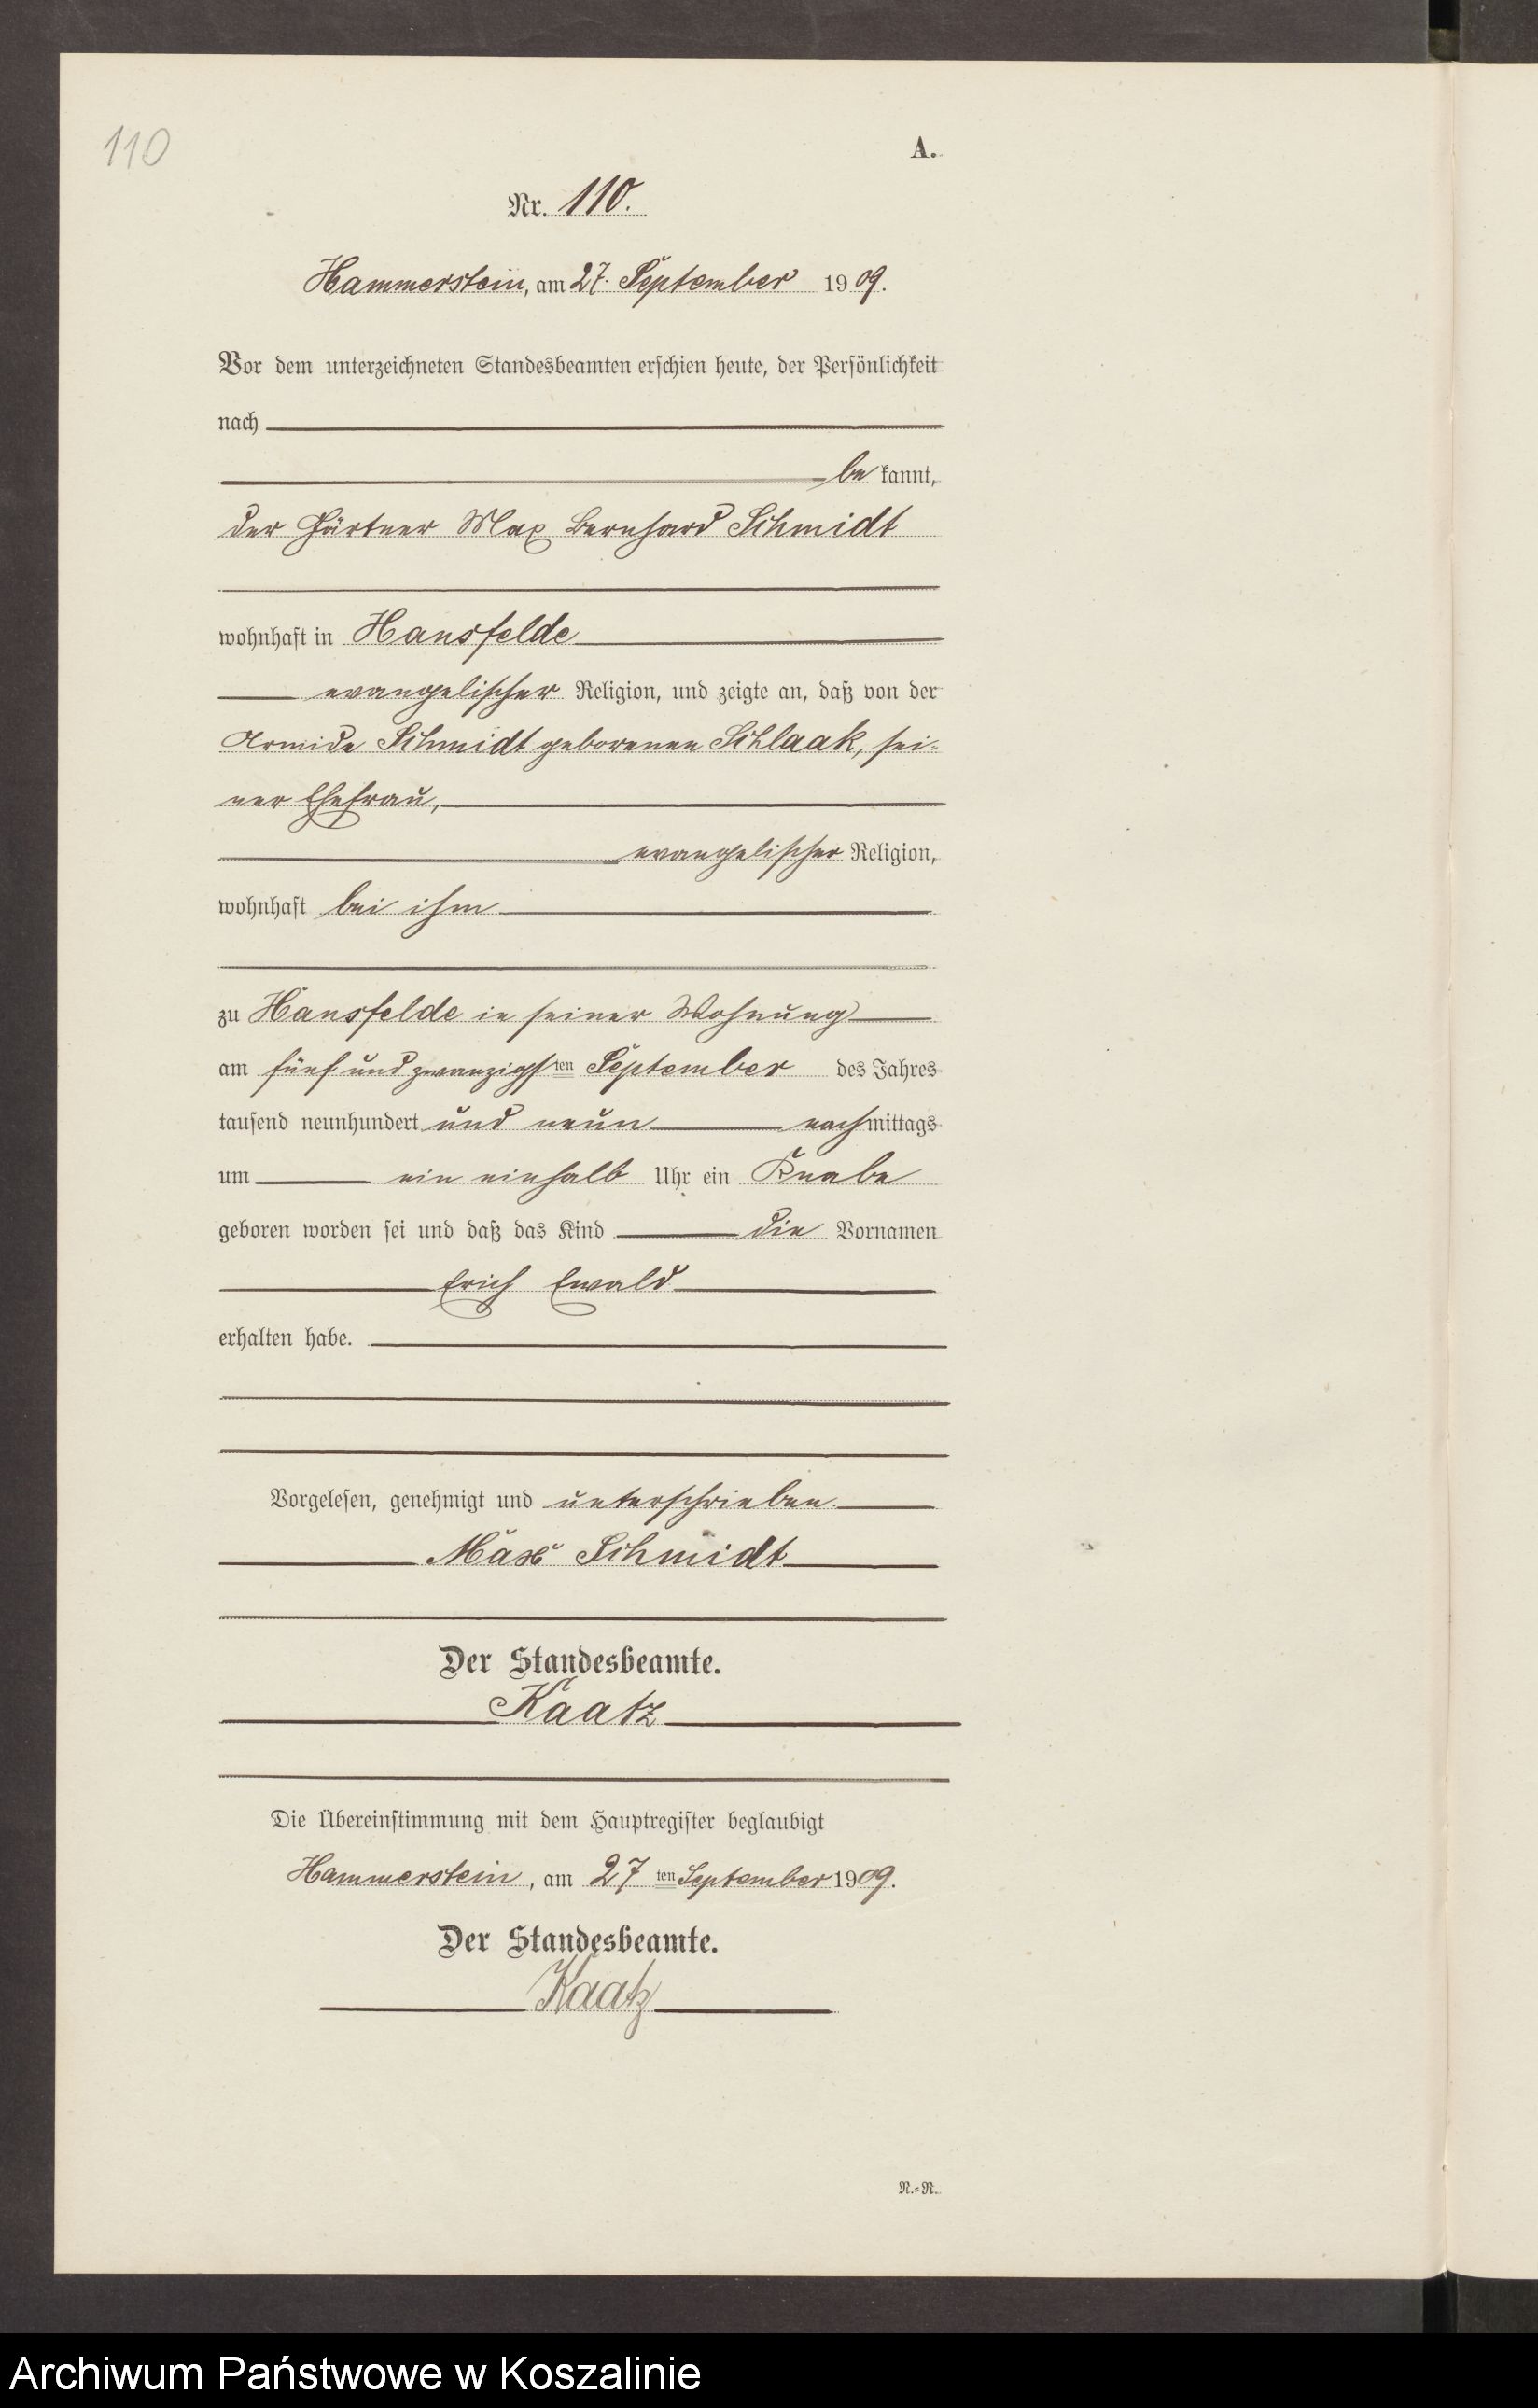 110
A.
Nr. 110.
Hammerstein, am 27. September 1909.
Vor dem unterzeichneten Standesbeamten erschien heute, der Persönlichkeit
nach
bekannt,
der Gärtner Max Bernhard Schmidt
wohnhaft in Hansfelde
evangelischer Religion, und zeigte an, daß von der
Armida Schmidt geborenen Schlaak, sei-
ner Ehefrau,
evangelischer Religion,
wohnhaft bei ihm
zu Hansfelde in seiner Wohnung
am fünf und zwanzigsten September des Jahres
tausend neunhundert und neun nachmittags
um ein einhalb Uhr ein Knabe
geboren worden sei und daß das Kind die Vornamen
Erich Ewald
erhalten habe.
Vorgelesen, genehmigt und unterschrieben.
Max Schmidt
Der Standesbeamte.
Kaatz
Die Übereinstimmung mit dem Hauptregister beglaubigt
Hammerstein, am 27ten September 1909.
Der Standesbeamte.
Kaatz
N.-R.
Archiwum Państwowe w Koszalinie